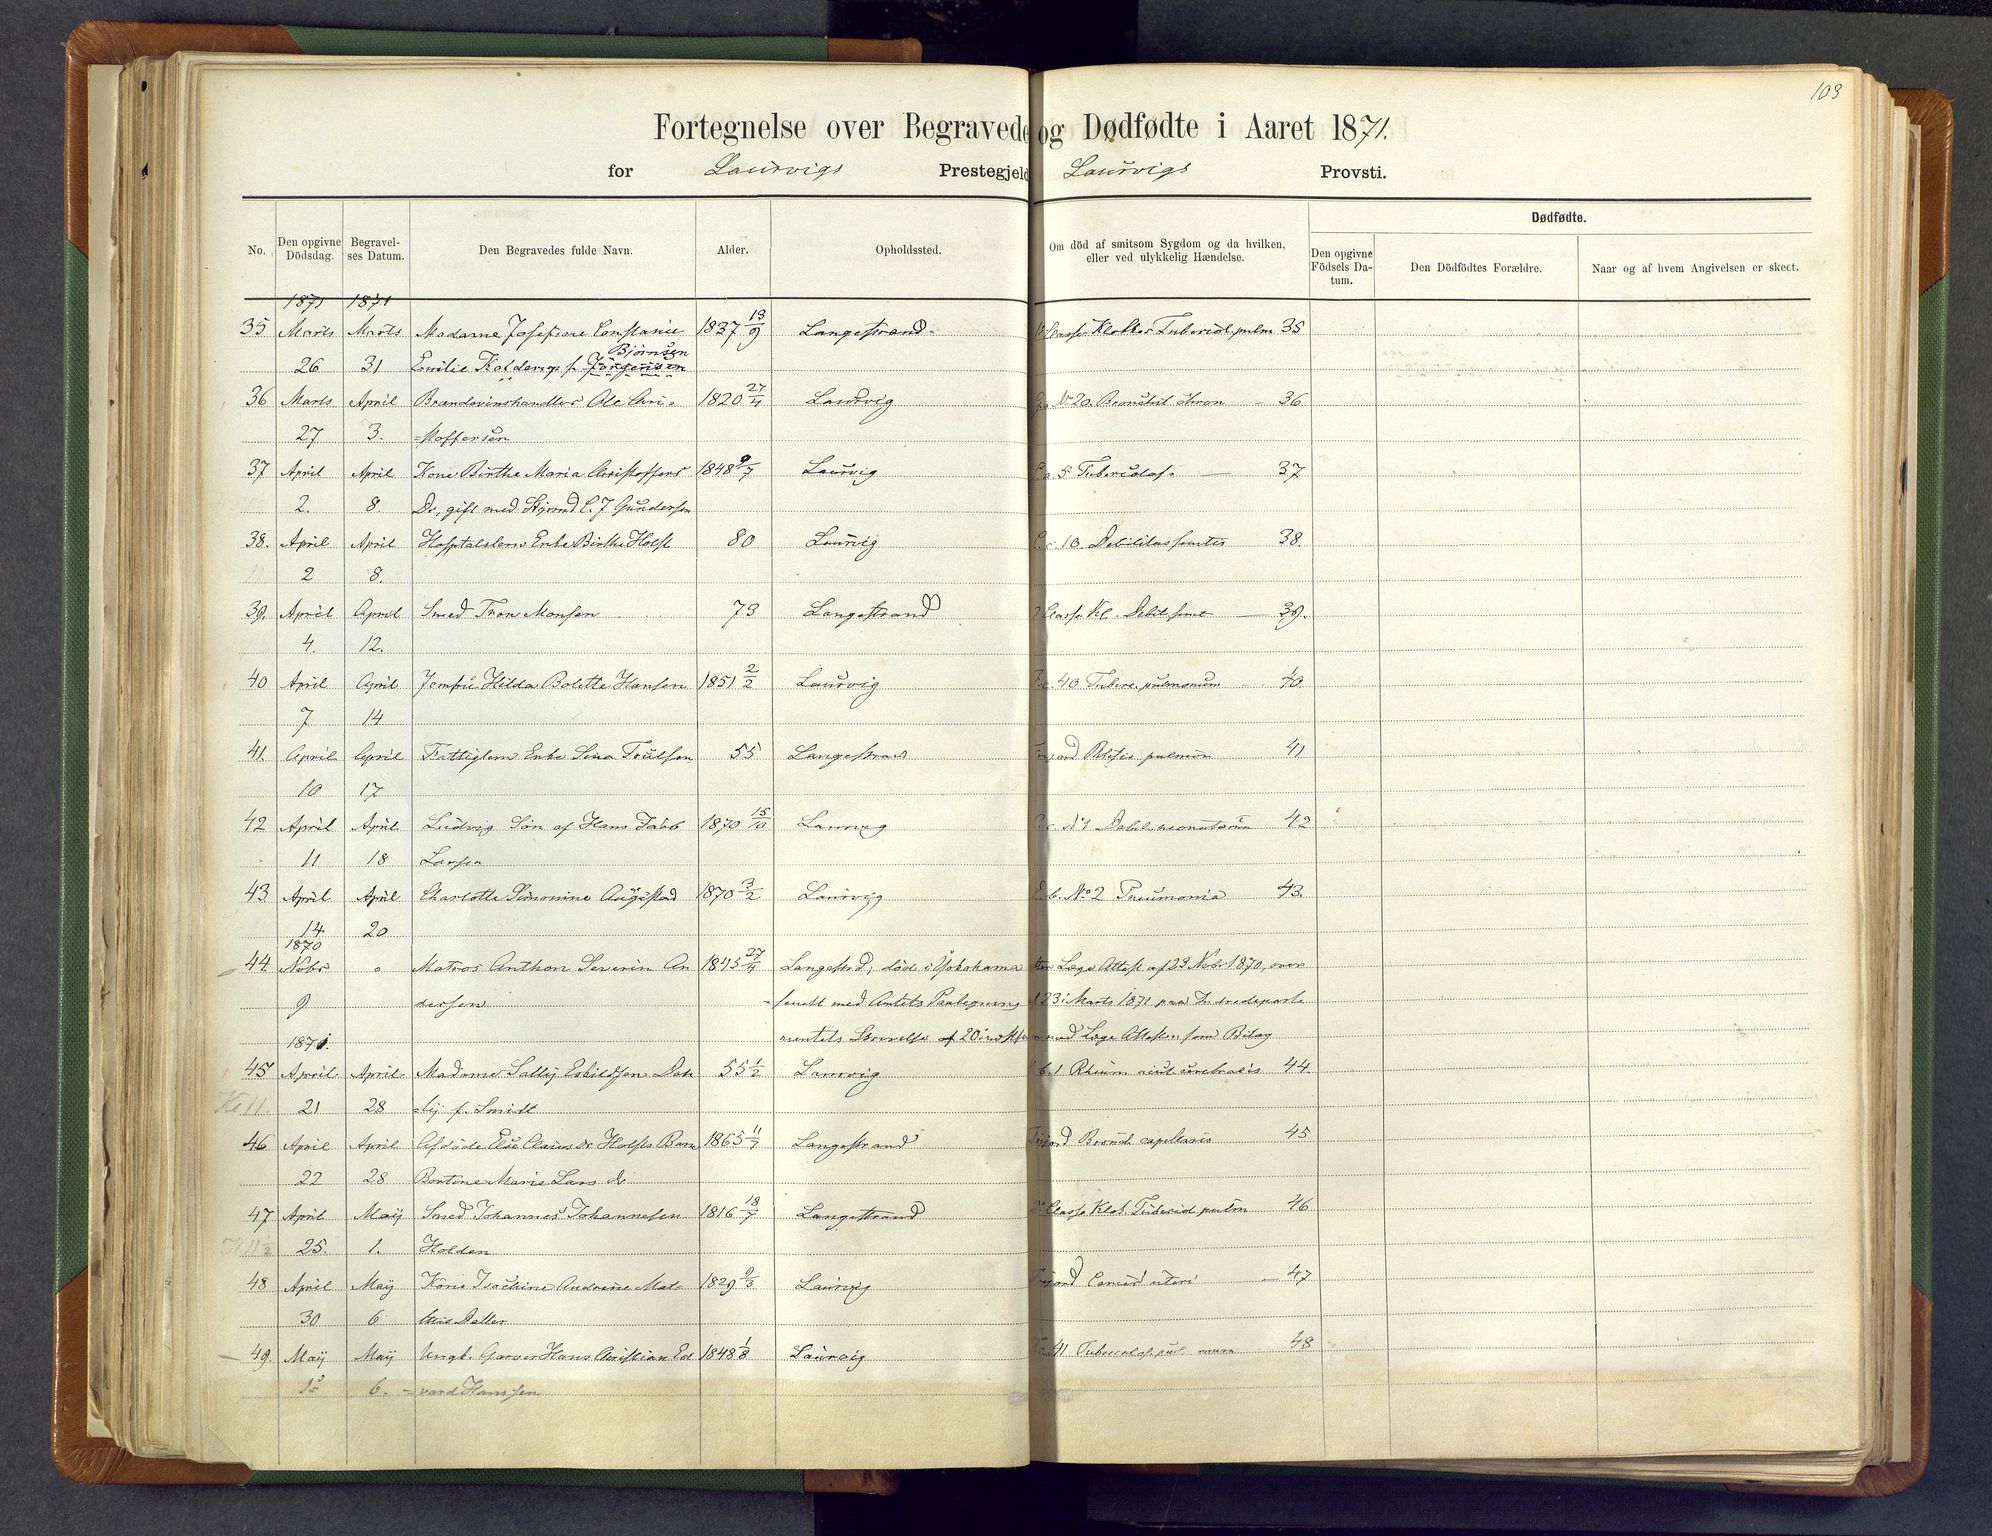 103
Fortegnelse over Begravede og Dødfødte i Aaret 1871.
for Laurvigs Prestegjeld Laurvigs Provsti.
No. Den opgivne Dödsdag. Begravelses Datum. Den Begravedes fulde Navn. Alder. Opholdssted. Om död af smitsom Sygdom og da hvilken, eller ved ulykkelig Hændelse. Dødfødte.
Den opgivne Födsels Datum. Den Dödfödtes Forældre. Naar og af hvem Angivelsen er skeet.
1871 1871
35 Marts Marts Madame Josefine Constanse 1837 13/9 Langestrand Classe Tubercul. pulm 35
Bjørnsen
26 31 Emilie Kolderup f. Jörgensen
36 Marts April Brændevinshandler Ole Chri- 1820 27/4 Laurvig No 20 Bronchit chron 36
27 3. -stoffersen
37 April April Kone Birthe Maria Christoffers 1848 9/7 Laurvig 5 Tuberculos. 37
2. 8. Dr, gift med C. J Gundersen
38. April April Hospitalslem Enke Birthe Holst 80 Laurvig 10. Debilitas senilis 38.
2 8.
39. April April Smed Tron Monsen 73 Langestrand Classe Kl. Debil. senil 39.
4. 12.
40 April April Jomfru Hilda Bolette Hansen 1851 2/2 Laurvig 40 Tuberc. pulmonum 40
7 14
41. April April Fattiglem Enke Sina Truelsen 55 Langestrand Frijord pulmon 41
10 17
42 April April Ludvig Søn af Hans Jacob 1870 15/10 Laurvig Debil neonatorum 42
11 18 Larsen
43 April April Charlotte Simonine Augestad 1870 3/2 Laurvig No 2 Pneumonia 43.
14 20
1870
44 Nobr " Matros Anthon Severin An 1845 27/4 Langestrd; död i Yokohama Læge Attest af 23 Nobr 1870, over
9. dersen sendt med Amtets Paategning 23 Marts 1871 paa Indredeparte
1871. mentets Skrivelse af 20 med Læge Attesten som Bilag
45 April April Madame Sally Eskildsen 55 1/2 Laurvig b. 1 cerebralis 44
21 28 f. Smidt
46 April April Afdöde Else Holsts Barn 1865 11/7 Langestrand Frijord Bronch capillaris 45
22 28 Bortine Marie Lars dr
47 April Maij Smed Johannes Johannesen 1816 18/7 Langestrand 2 Classe Tubercul pulm 46
25. 1. Holden
48 April Maij Kone Andrine Mat- 1829 9/3 Laurvig Frijord Cancer uteri 47
30 6
49. Maij Maij Ungk. Garver Hans Christian Ed 1848 1/8 Laurvig 41 Tuberculos pul 48
1 6. -vard Hanssen